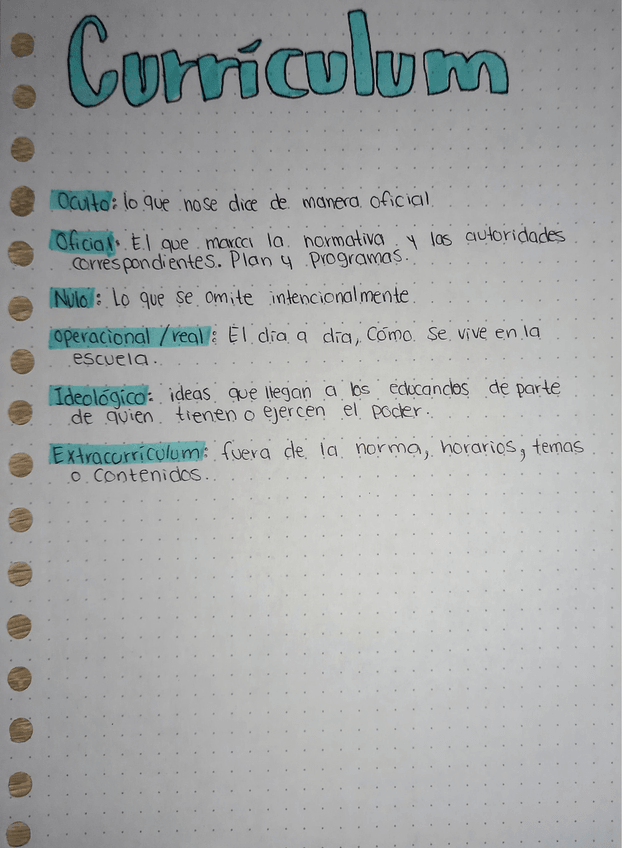 Currículum
Oculto: lo que nose dice de manera oficial.
Oficial: El que marca la normativa y las autoridades
correspondientes. Plan y Programas.
Nulo: Lo que se omite intencionalmente.
operacional/real: El día a día, Cómo se vive en la
escuela.
Ideológico: ideas que llegan a los educandos de parte
de quien tienen o ejercen el poder.
Extracurrículum: fuera de la norma, horarios, temas
o contenidos.